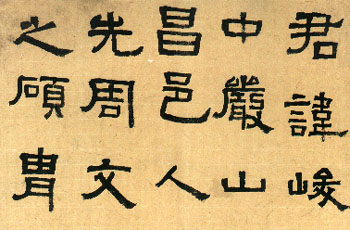 君諱峻
中嚴山
昌邑人
先周文
之碩冑